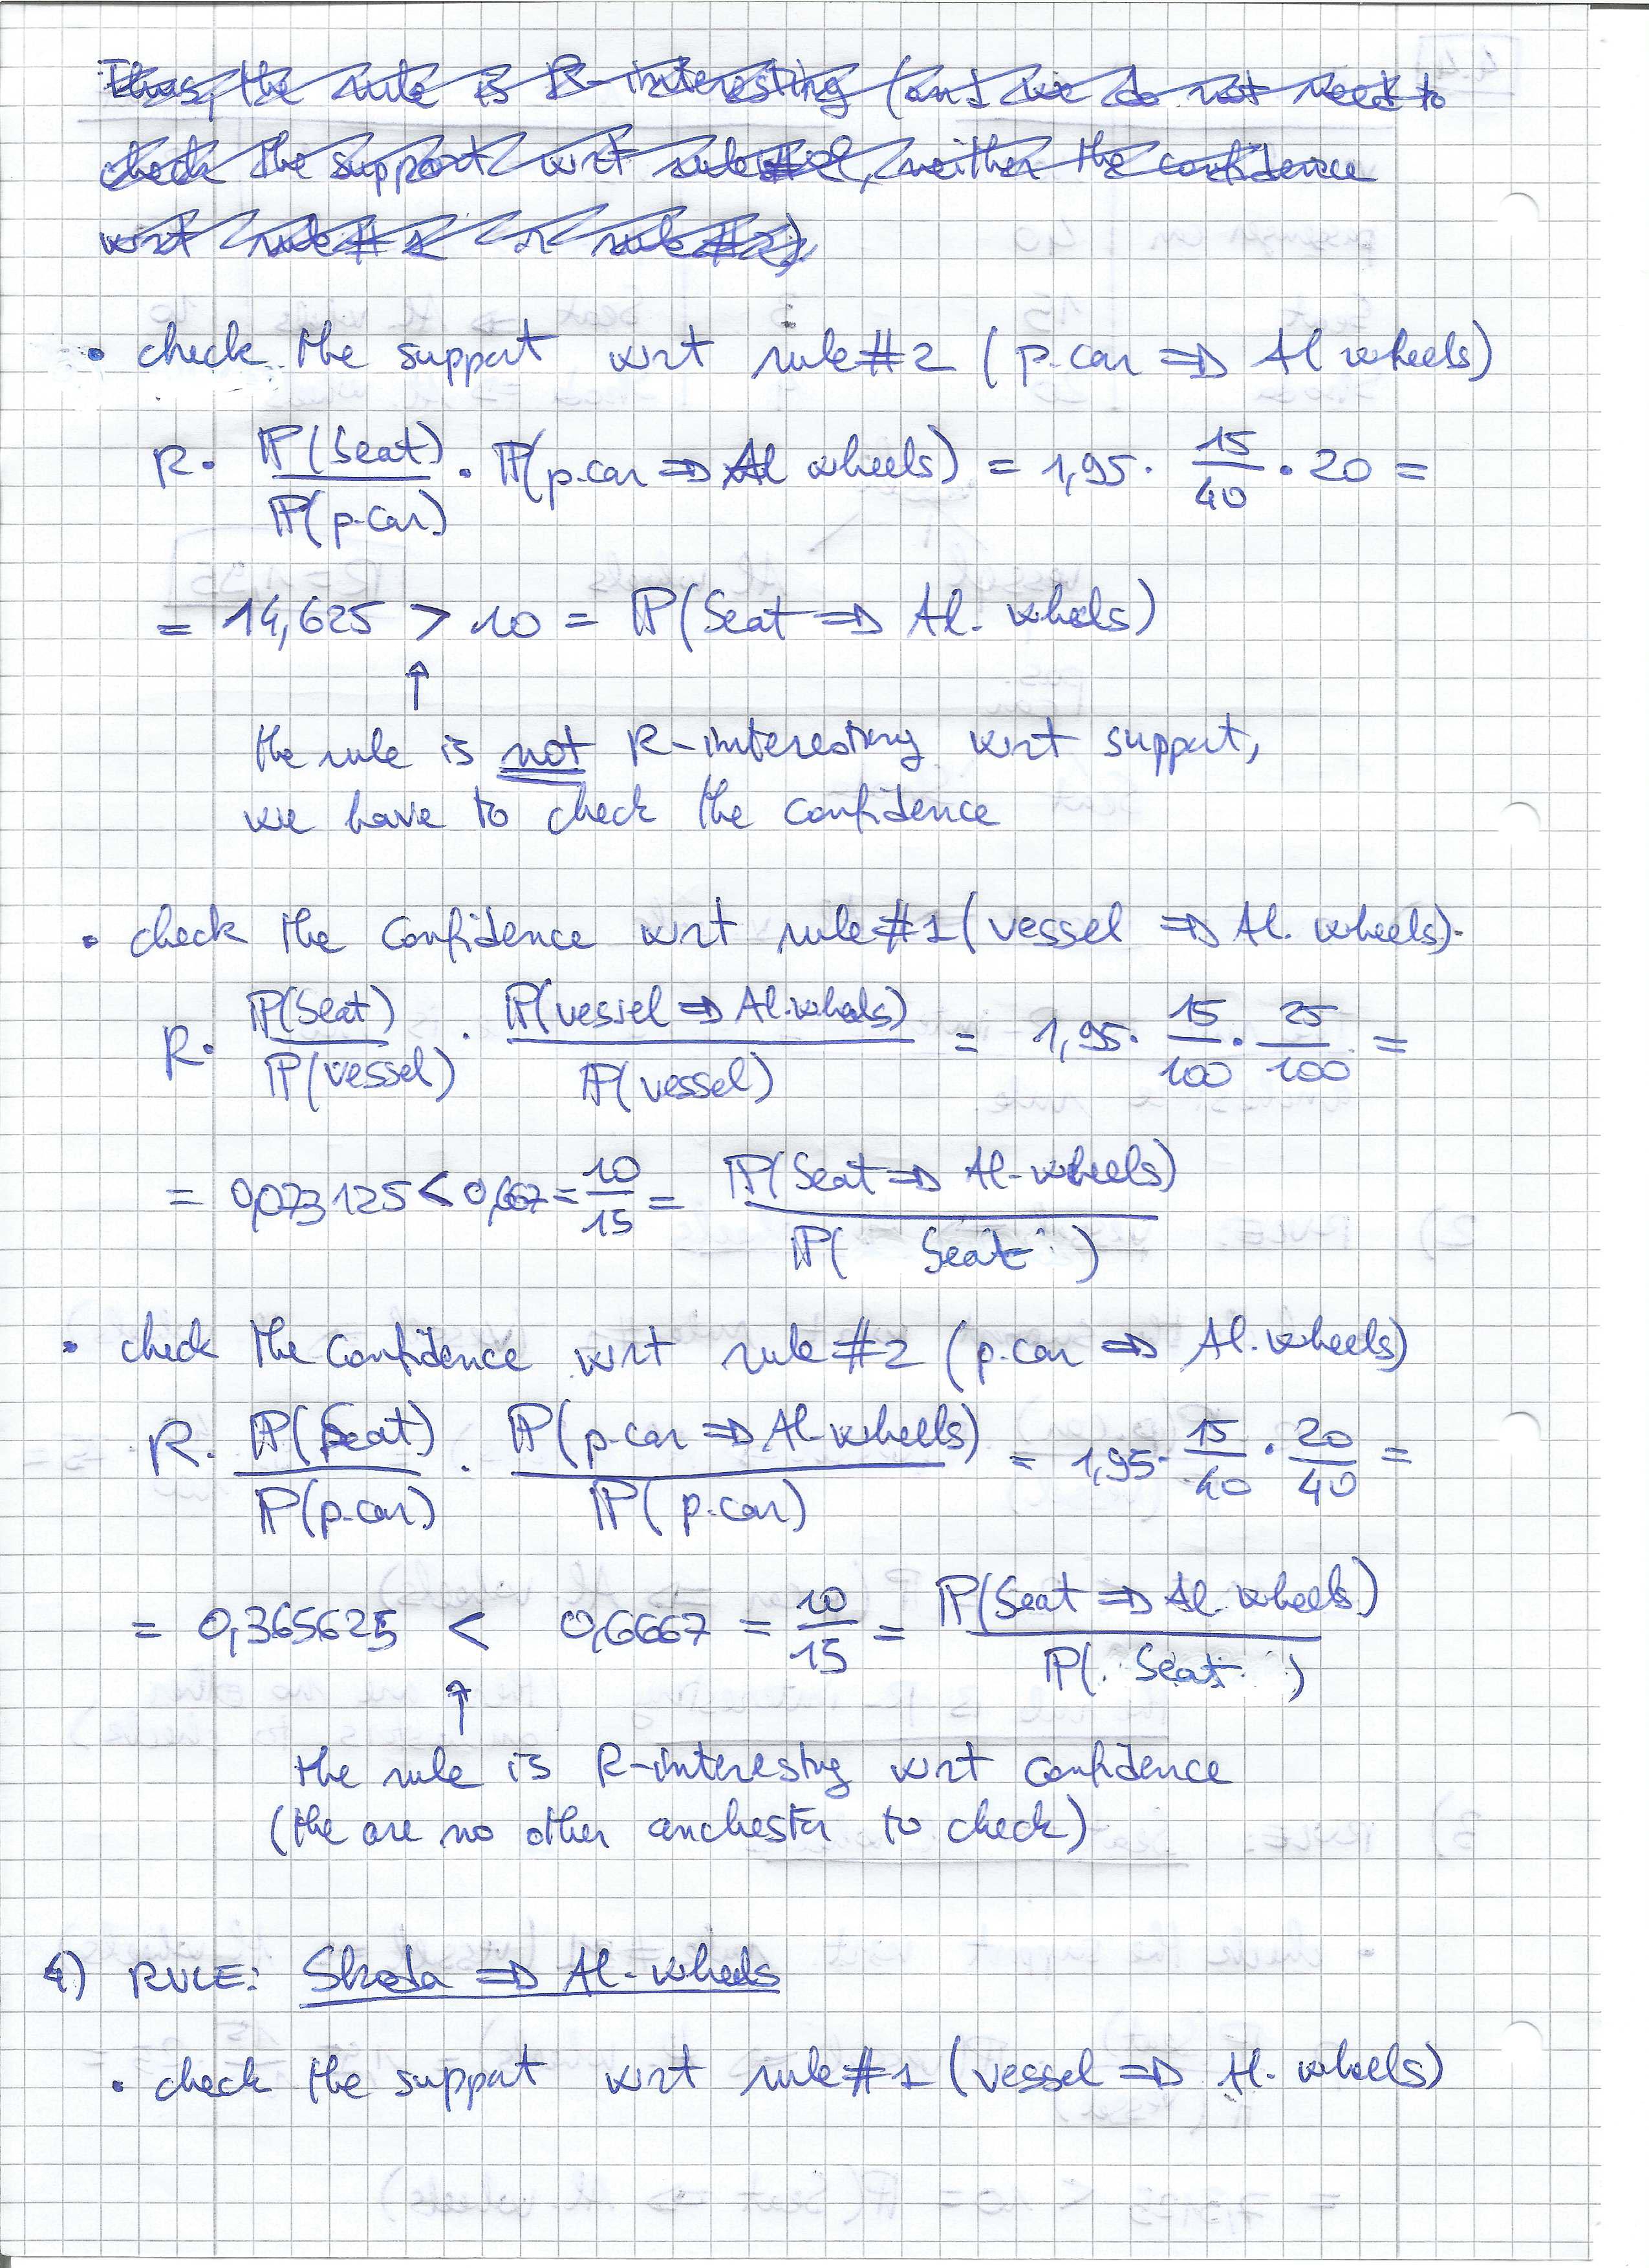 Thus, the rule is R-interesting (and we do not need to
check the support wrt rule #2, neither the confidence
wrt rule #1 or rule #2)
• check the support wrt rule #2 (p.car ⇒ Al wheels)
R · P(Seat) / P(p.car) · P(p.car ⇒ Al wheels) = 1,95 · 15/40 · 20 =
= 14,625 > 10 = P(Seat ⇒ Al. wheels)
↑
the rule is not R-interesting wrt support,
we have to check the confidence
• check the confidence wrt rule #1 (vessel ⇒ Al. wheels).
R · P(Seat) / P(vessel) · P(vessel ⇒ Al. wheels) / P(vessel) = 1,95 · 15/100 · 25/100 =
= 0,073125 < 0,667 = 10/15 = P(Seat ⇒ Al. wheels) / P(Seat)
• check the confidence wrt rule #2 (p.car ⇒ Al. wheels)
R · P(Seat) / P(p.car) · P(p.car ⇒ Al. wheels) / P(p.car) = 1,95 · 15/40 · 20/40 =
= 0,365625 < 0,6667 = 10/15 = P(Seat ⇒ Al. wheels) / P(Seat)
↑
the rule is R-interesting wrt confidence
(the are no other anchester to check)
4) RULE: Skoda ⇒ Al. wheels
• check the support wrt rule #1 (vessel ⇒ Al. wheels)